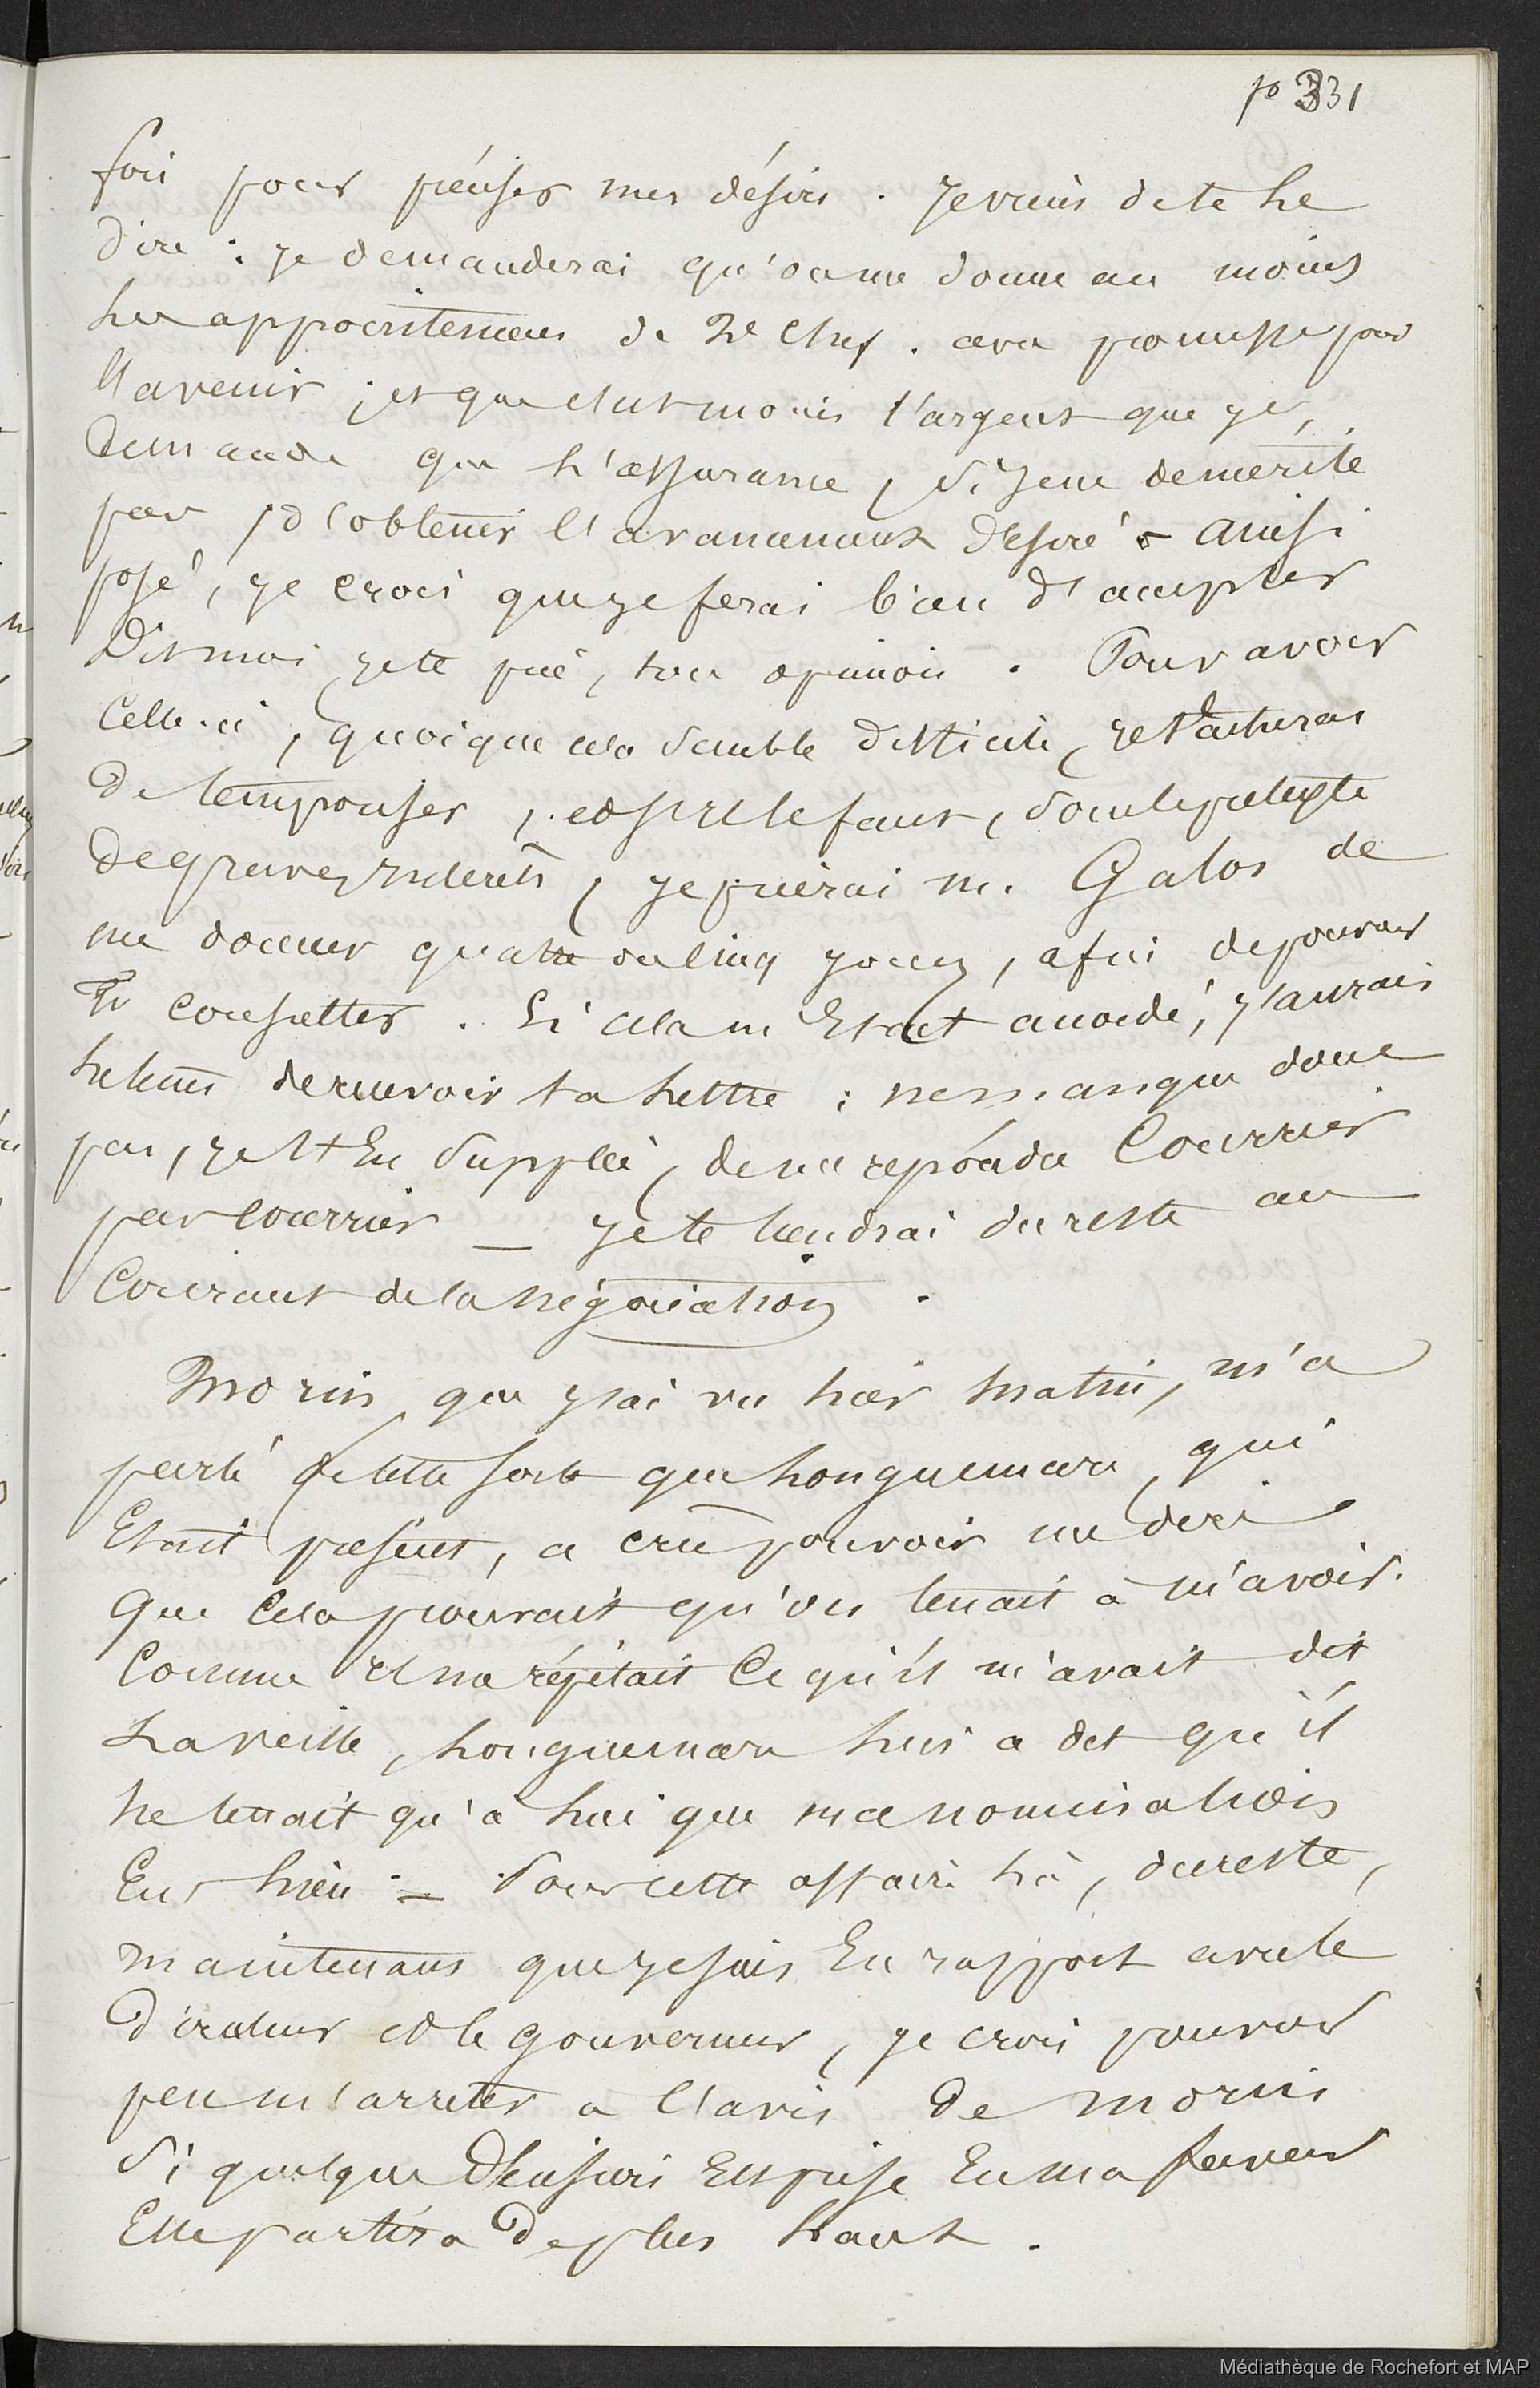 po 331
fois pour préciser mes désirs. Je viens de te le
dire : je demanderai qu'on me donne au moins
les appointemens de 2d Chef. avec promesse pour
l'avenir ; et que c'est moins l'argent que je
demande que l'assurance, si je ne démérite
pas, d'obtenir l'avancement désiré. Ainsi
posé, je crois que je ferai bien d'accepter
Dis moi, je te prie, ton opinion. Pour avoir
celle-ci, quoique cela semble difficile, je tâcherai
de temporiser, et s'il le faut, sous le prétexte
de graves intérêts, je prierai M. Galos de
me donner quatre ou cinq jours, afin de pouvoir
te consulter. Si cela m'était accordé, j'aurais
le tems de recevoir ta lettre ; ne manque donc
pas, je t'en supplie, de me répondre Courrier
par courrier — je te tiendrai du reste au
Courant de la négociation.
Morin, que j'ai vu hier matin, m'a
parlé de telle sorte que honguemare, qui
Etait présent, a cru pouvoir me dire
que cela prouvait qu'on tenait à m'avoir.
Comme il me répétait ce qu'il m'avait dit
la veille, honguemare lui a dit qu'il
ne tenait qu'à lui que ma nomination
Eut lieu — Pour cette affaire là, du reste,
maintenant que je suis En rapport avec le
directeur et le gouverneur, je crois pouvoir
peu m'arrêter à l'avis de morin
Si quelque décision Est prise En ma faveur
Elle partira de plus haut.
Médiathèque de Rochefort et MAP